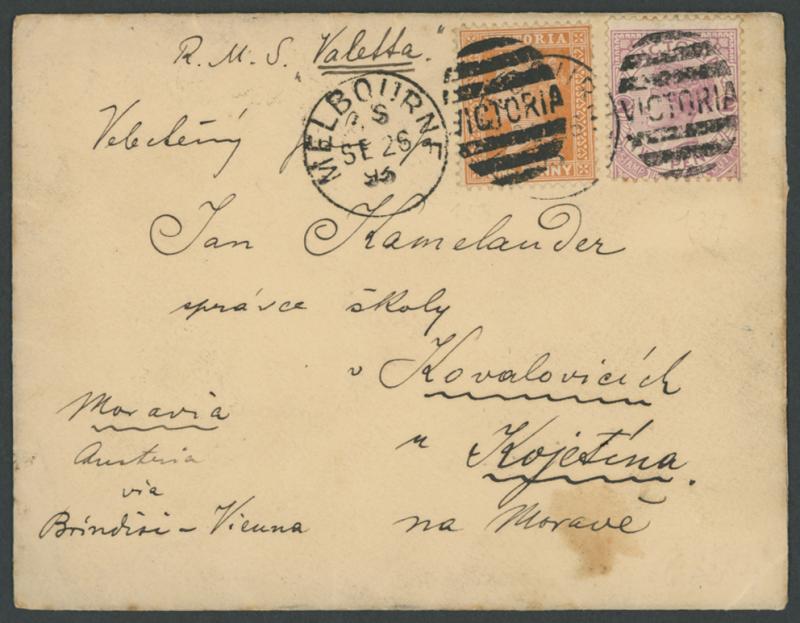 R. M. S. "Valetta."
VICTORIA
PENNY
VICTORIA
VICTORIA
MELBOURNE
S
SE 26
93
Velectěný pan
Jan Kamelander
správce školy
v Kovalovicích
u Kojetína
na Moravě
Moravia
Austria
via
Brindisi - Vienna